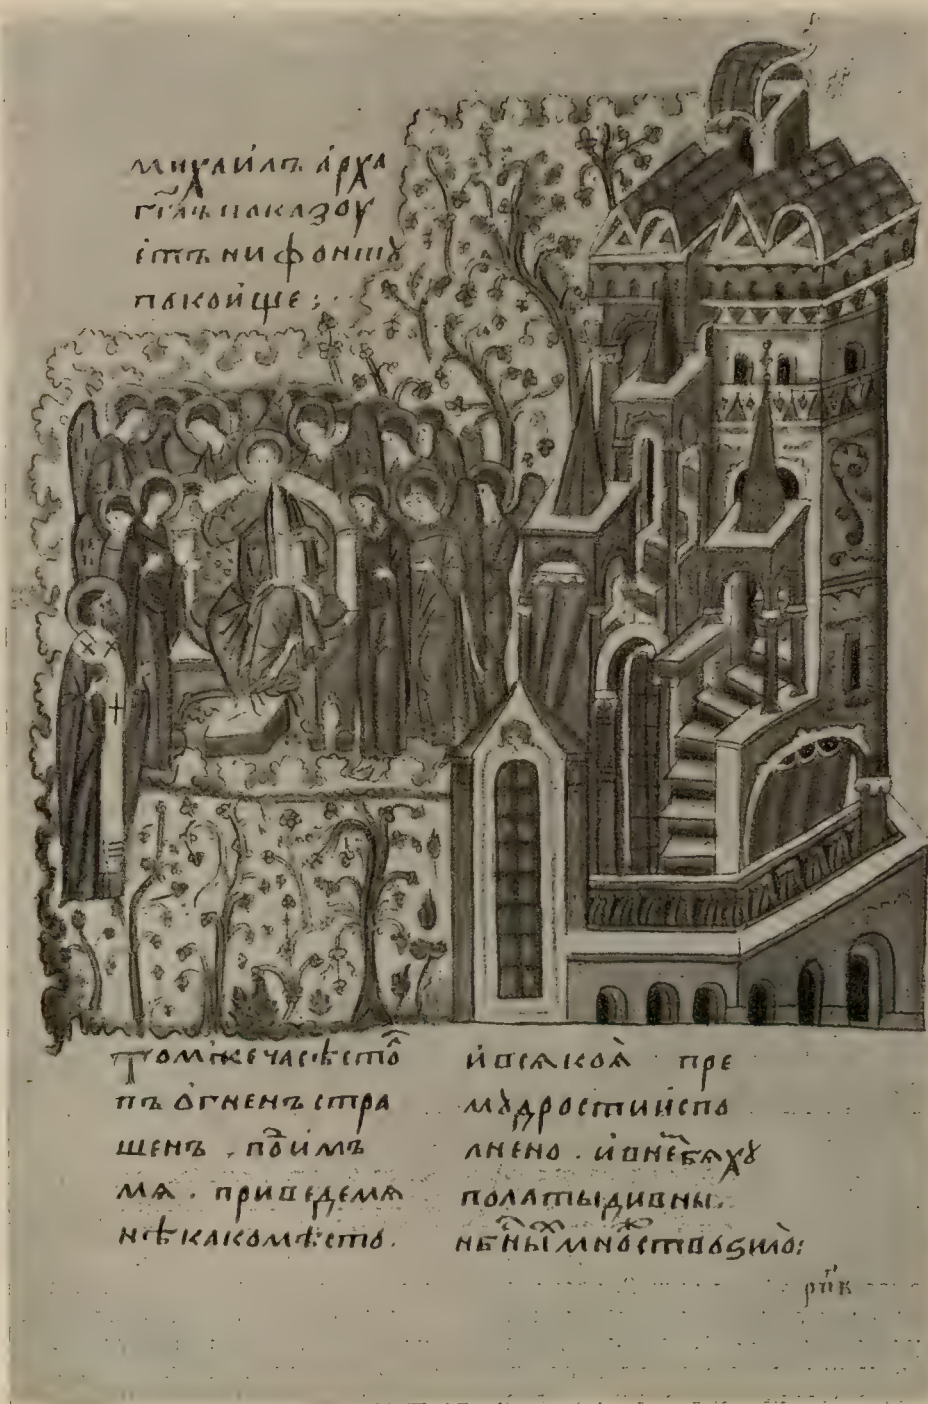 михаилъ а҆рха
гг҃лъ показоу
є҆тъ нифонтꙋ
покои҆ще:
томже часѣ сто
пъ ѻ҆гненъ стра
шенъ . поимъ
мѧ . приведе мѧ
нѣкако мѣсто .
и҆ всѧкоѧ̀ пре
мꙋдрости и҆спо
лнено . и҆ в не бѧхꙋ
полаты дивны .
нб҃ны мно ство ѕило: